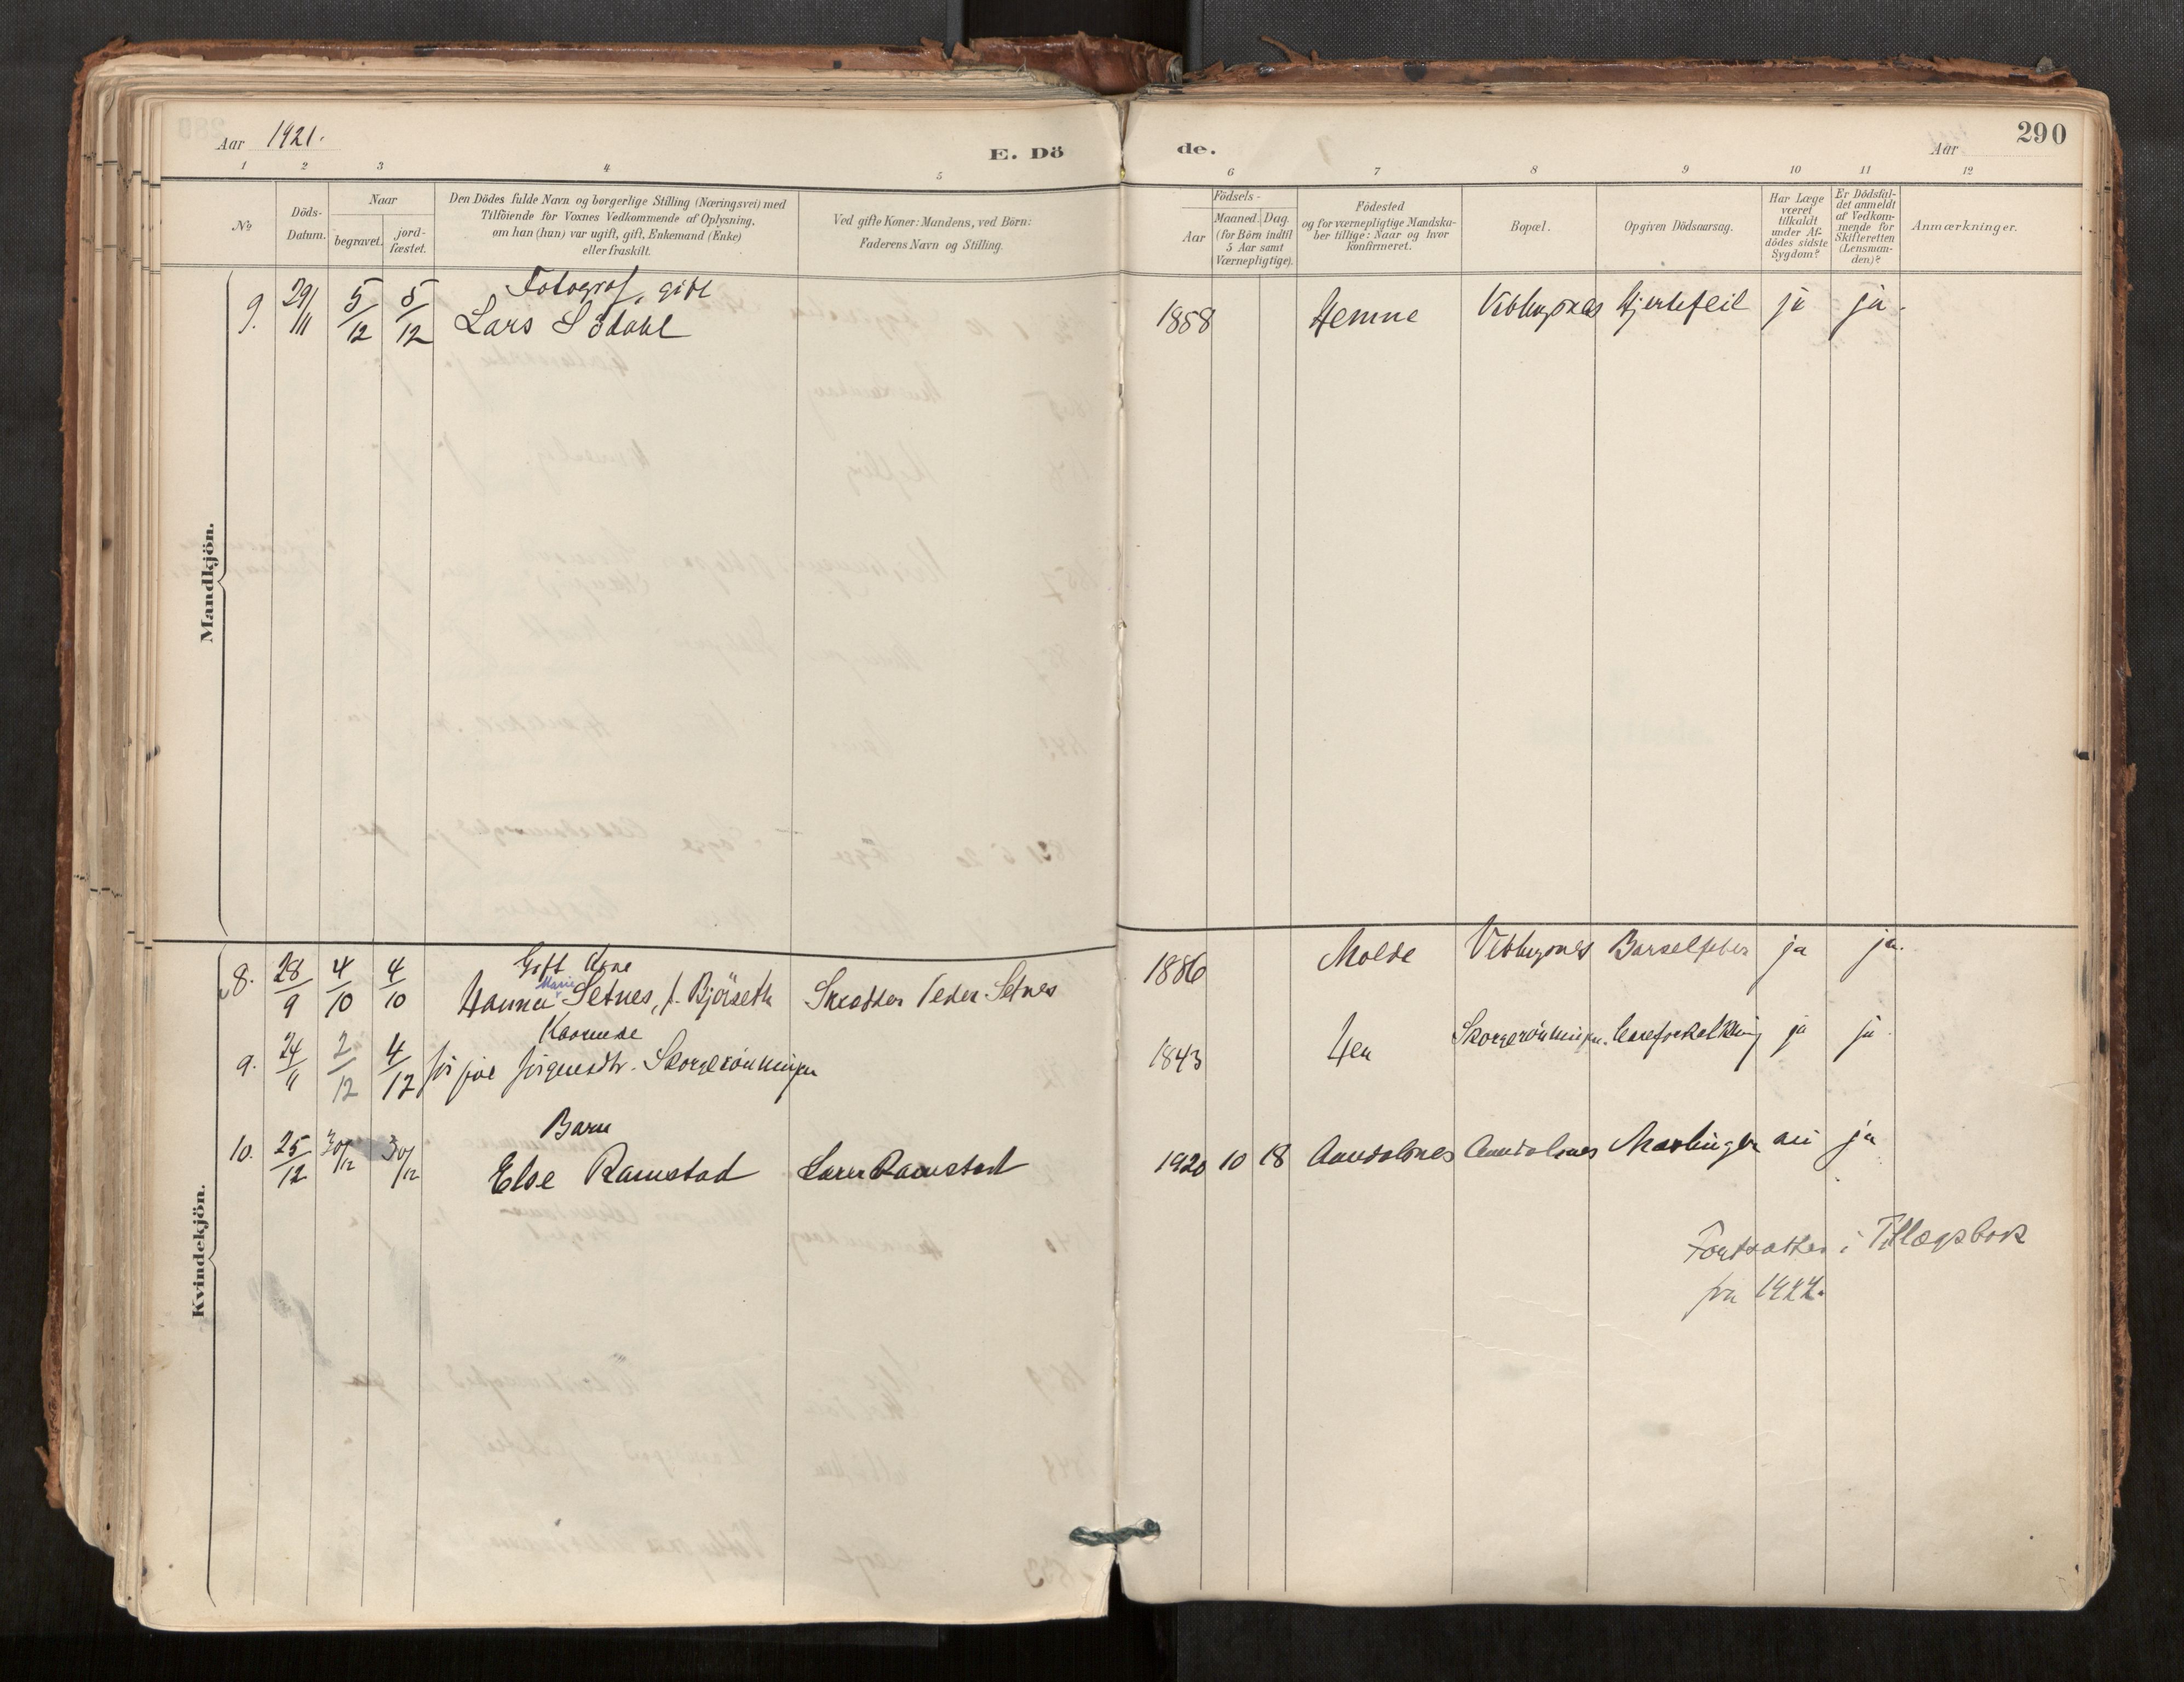 290
Aar 1921.
E. Dö
de.
Aar
1 2 3 4 5 6 7 8 9 10 11 12
No
Döds-
Datum.
Naar
begravet.
jord-
fæstet.
Den Dödes fulde Navn og borgerlige Stilling (Næringsvei) med
Tilföiende for Voxnes Vedkommende af Oplysning,
om han (hun) var ugift, gift, Enkemand (Enke)
eller fraskilt.
Ved gifte Koner: Mandens, ved Börn:
Faderens Navn og Stilling.
Födsels-
Aar
Maaned. Dag.
(for Börn indtil
5 Aar samt
Værnepligtige).
Födested
og for værnepligtige Mandska-
ber tillige: Naar og hvor
konfirmeret.
Bopæl.
Opgiven Dödsaarsag.
Har Læge
været
tilkaldt
under Af-
dödes sidste
Sygdom?
Er Dödsfal-
det anmeldt
af Vedkom-
mende for
Skifteretten
(Lensman-
den)?
Anmærkninger.
Mandkjön.
Fotograf, gift
9. 29/11 5/12 5/12 Lars Södahl 1858 Hemne Veblungsnes Hjertefeil ja ja.
Kvindekjön.
Gift Kone
Marie
8. 28/9 4/10 4/10 Hanna Setnes, f. Björseth Skrædder Peder Setnes 1886 Molde Veblungsnes Barselfeber ja ja.
Kaarenke
9. 24/11 2/12 4/12 Jörgensdtr. Skorgerönningen 1843 Hen Skorgerönningen ja ja
Barn
10. 25/12 30/12 30/12 Else Ramstad Ramstad 1920 10 18 Aandalsnes Aandalsnes Mæslinger nei ja
Fortsættes i Tillægsbok
fra 1922.